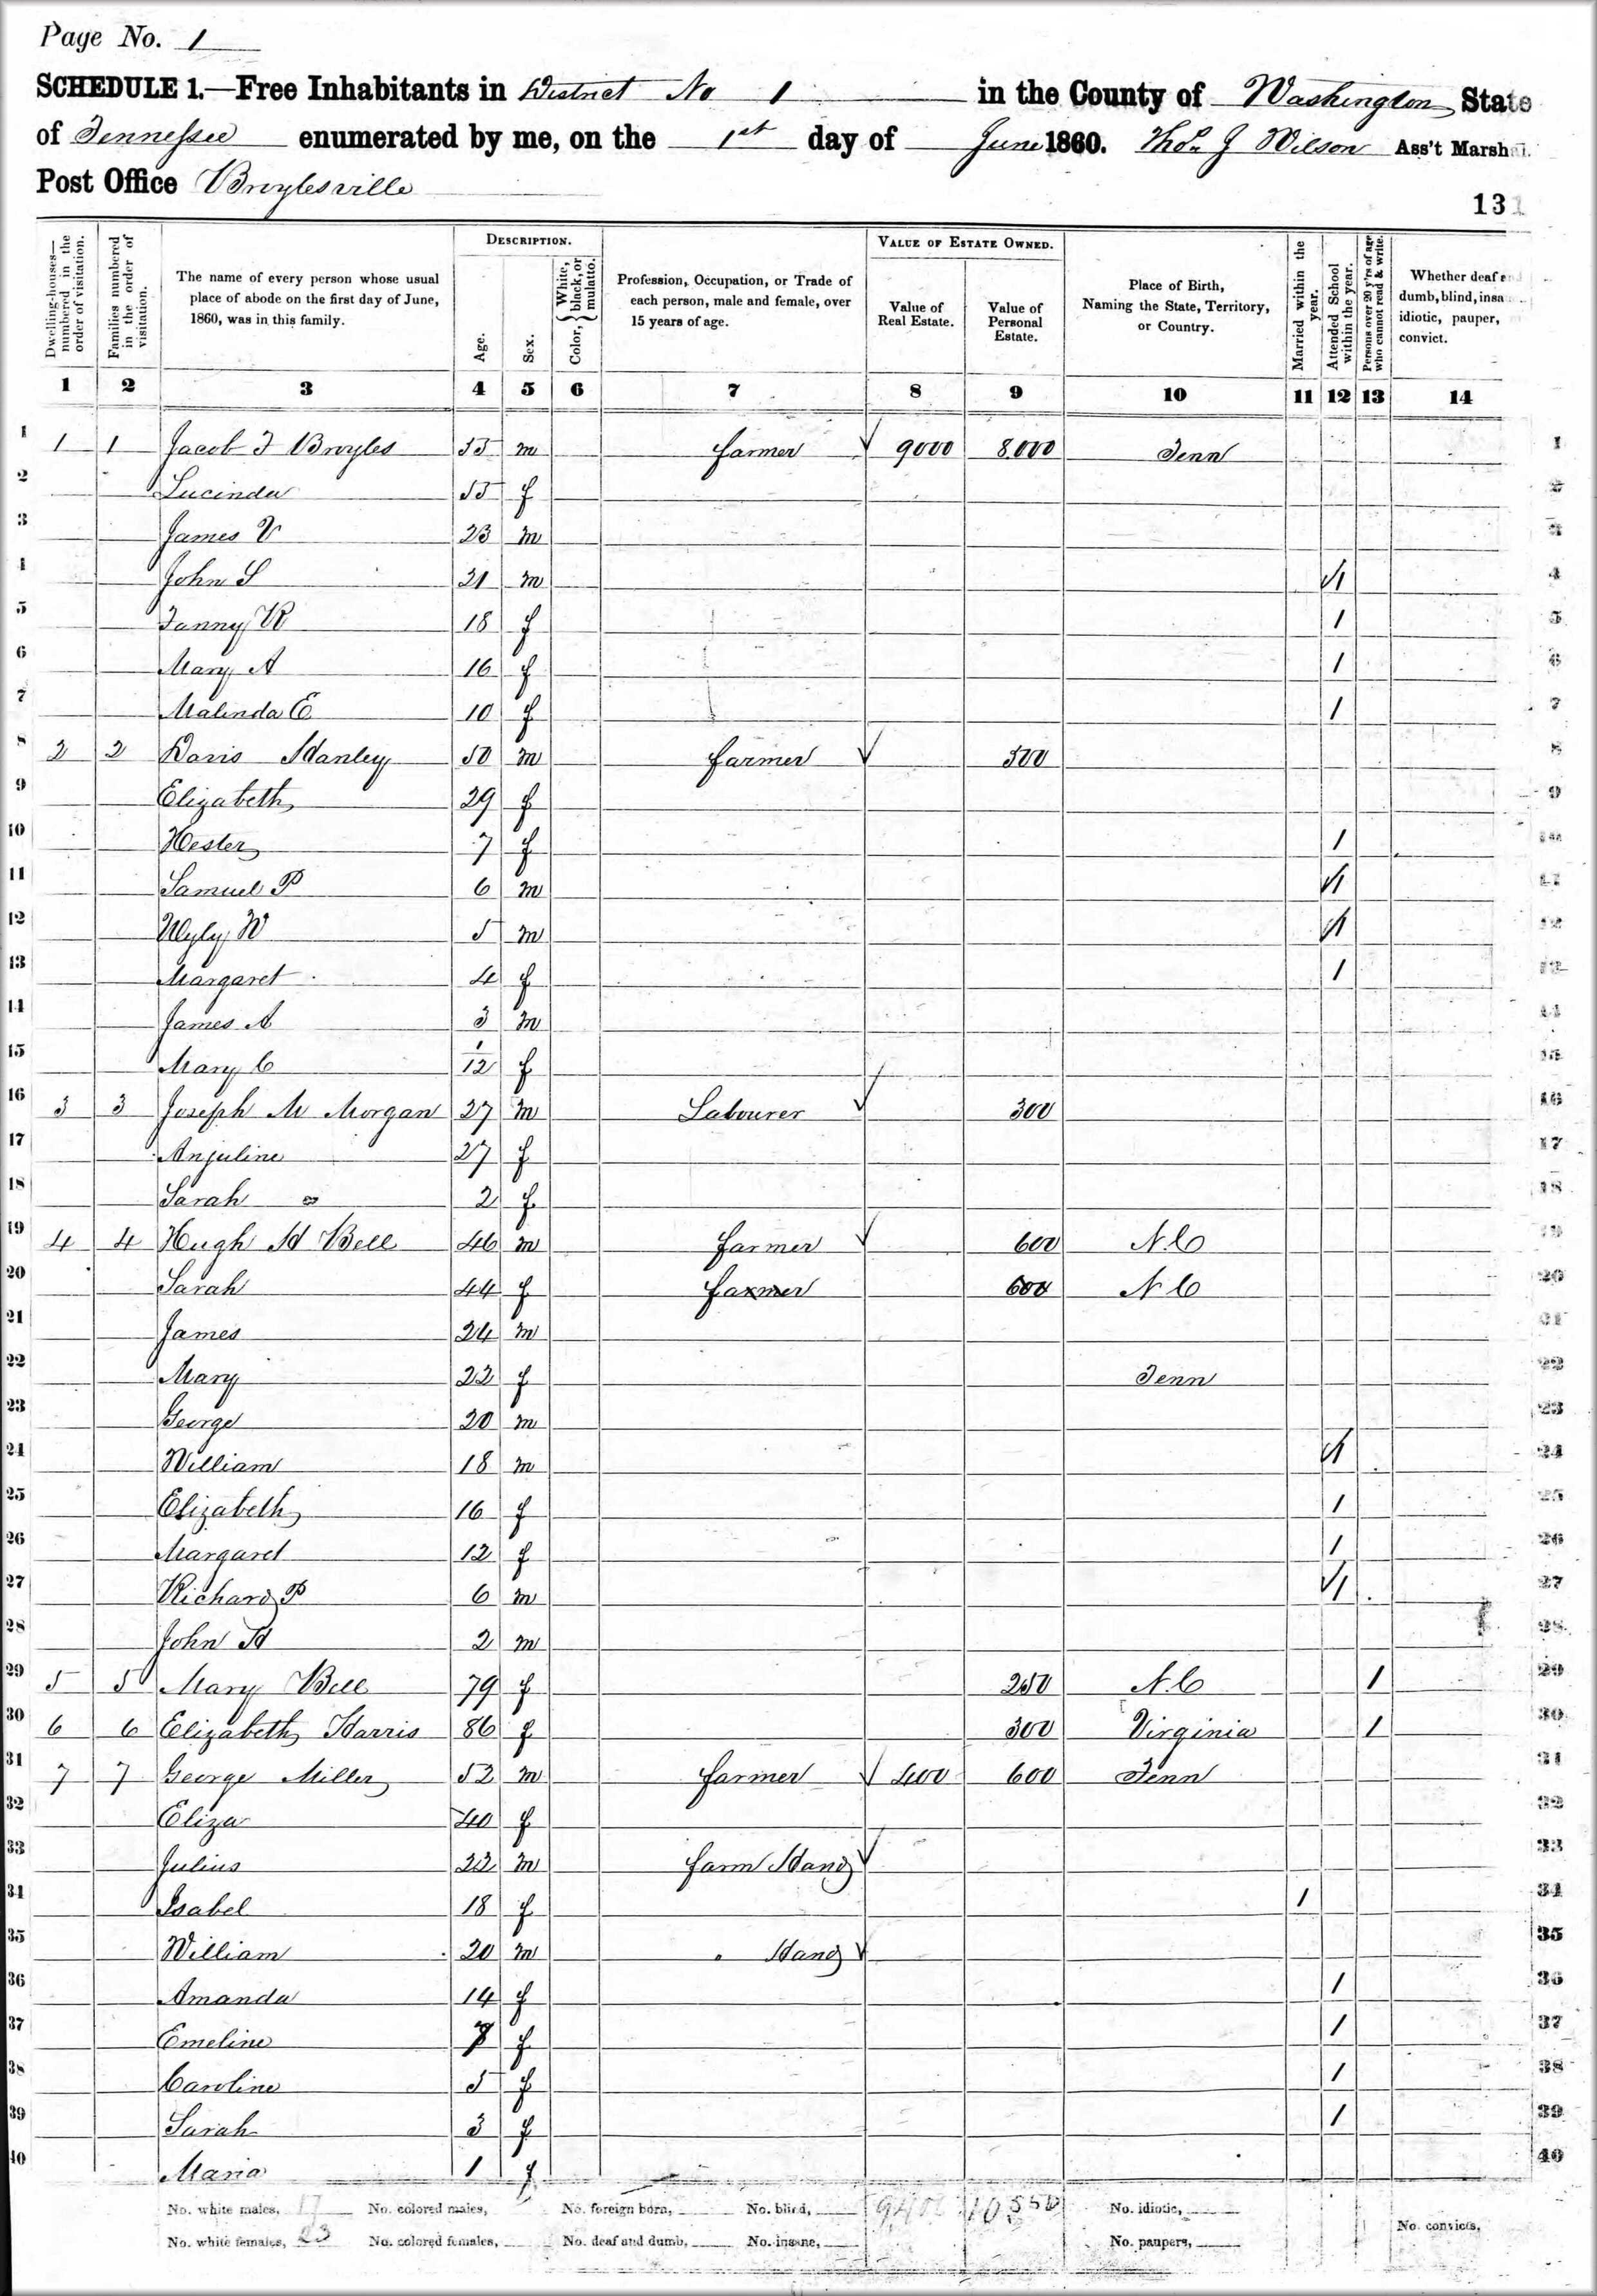 Page No. 1
SCHEDULE 1.—Free Inhabitants in District No 1 in the County of Washington State
of Tennessee enumerated by me, on the 1st day of June 1860. Thos J Wilson Ass't Marshal.
Post Office Broylesville
131
Dwelling-houses—numbered in the order of visitation.
Families numbered in the order of visitation.
The name of every person whose usual place of abode on the first day of June, 1860, was in this family.
DESCRIPTION.
Age.
Sex.
Color, { White, black, or mulatto.
Profession, Occupation, or Trade of each person, male and female, over 15 years of age.
VALUE OF ESTATE OWNED.
Value of Real Estate.
Value of Personal Estate.
Place of Birth, Naming the State, Territory, or Country.
Married within the year.
Attended School within the year.
Persons over 20 y'rs of age who cannot read & write.
Whether deaf and dumb, blind, insane, idiotic, pauper, or convict.
1 2 3 4 5 6 7 8 9 10 11 12 13 14
1 1 1 Jacob F Broyles 55 m farmer 9000 8,000 Tenn 1
2 Lucinda 55 f 2
3 James V 23 m 3
4 John S 21 m 1 4
5 Fanny R 18 f 1 5
6 Mary A 16 f 1 6
7 Malinda E 10 f 1 7
8 2 2 Davis Hanley 50 m farmer 500 8
9 Elizabeth 29 f 9
10 Hester 7 f 1 10
11 Samuel P 6 m 1 11
12 Wyly W 5 m 1 12
13 Margaret 4 f 1 13
14 James A 3 m 14
15 Mary C 1/12 f 15
16 3 3 Joseph M Morgan 27 m Labourer 300 16
17 Anjuline 27 f 17
18 Sarah 2 f 18
19 4 4 Hugh H Bell 46 m farmer 600 N.C 19
20 Sarah 44 f farmer 600 N C 20
21 James 24 m 21
22 Mary 22 f Tenn 22
23 George 20 m 23
24 William 18 m 1 24
25 Elizabeth 16 f 1 25
26 Margaret 12 f 1 26
27 Richard P 6 m 1 27
28 John H 2 m 28
29 5 5 Mary Bell 79 f 250 N.C 1 29
30 6 6 Elizabeth Harris 86 f 300 Virginia 1 30
31 7 7 George Miller 52 m farmer 400 600 Tenn 31
32 Eliza 40 f 32
33 Julius 22 m farm Hand 33
34 Isabel 18 f 1 34
35 William 20 m " Hand 35
36 Amanda 14 f 1 36
37 Emeline f 1 37
38 Caroline 5 f 1 38
39 Sarah 3 f 1 39
40 Maria 1 f 40
No. white males, 17 No. colored males, No. foreign born, No. blind, 9400 10550 No. idiotic,
No. white females, 23 No. colored females, No. deaf and dumb, No. insane, No. paupers, No. convicts,